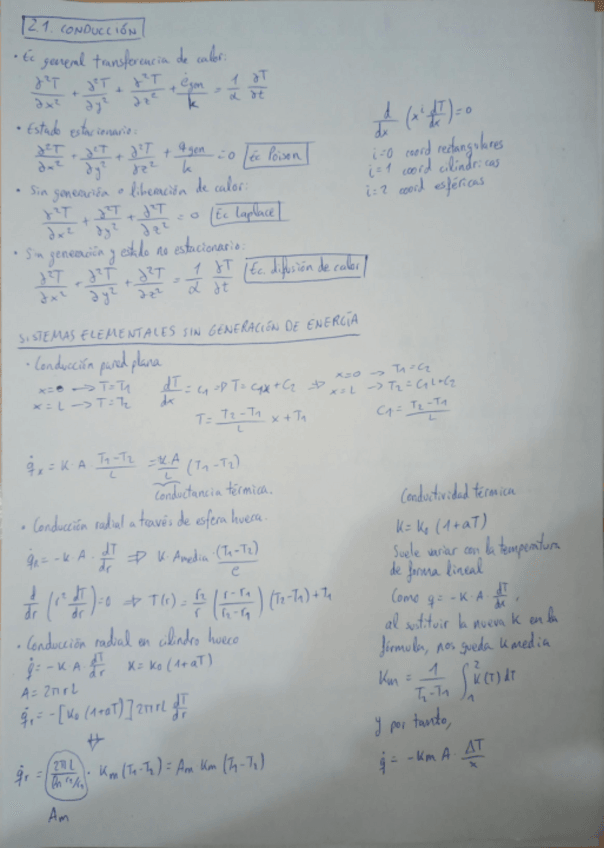 2.1. CONDUCCIÓN
· Ec general transferencia de calor:
∂²T/∂x² + ∂²T/∂y² + ∂²T/∂z² + ėgen/k = 1/α ∂T/∂t
· Estado estacionario:
∂²T/∂x² + ∂²T/∂y² + ∂²T/∂z² + qgen/k = 0 Ec Poison
· Sin generación o liberación de calor:
∂²T/∂x² + ∂²T/∂y² + ∂²T/∂z² = 0 Ec Laplace
· Sin generación y estado no estacionario:
∂²T/∂x² + ∂²T/∂y² + ∂²T/∂z² = 1/α ∂T/∂t Ec. difusión de calor
d/dx (xⁱ dT/dx) = 0
i=0 coord rectangulares
i=1 coord cilíndricas
i=2 coord esféricas
SISTEMAS ELEMENTALES SIN GENERACIÓN DE ENERGÍA
· Conducción pared plana
x=0 → T=T1 dT/dx = C1 ⇒ T=C1x+C2 ⇒ x=0 → T1=C2
x=L → T=T2 x=L → T2=C1L+C2
T = T2-T1/L x + T1 C1 = T2-T1/L
q̇x = K·A T1-T2/L = K·A/L (T1-T2)
conductancia térmica.
· Conducción radial a través de esfera hueca.
q̇r = -K·A· dT/dr ⇒ K Amedia · (T1-T2)/e
d/dr (r² dT/dr) = 0 ⇒ T(r) = r2/r (r-r1/r2-r1) (T2-T1) + T1
· Conducción radial en cilindro hueco
q̇ = -K A· dT/dr K = K0 (1+aT)
A = 2πrL
q̇r = -[K0 (1+aT)] 2πrL dT/dr
⇓
q̇r = 2πL/ln r2/r1 · Km (T1-T2) = Am Km (T1-T2)
Am
Conductividad térmica
K = K0 (1+aT)
Suele variar con la temperatura
de forma lineal
Como q = -K·A· dT/dx,
al sustituir la nueva K en la
fórmula, nos queda K media
Km = 1/T2-T1 ∫₁² K(T) dT
y por tanto,
q̇ = -Km A· ΔT/x